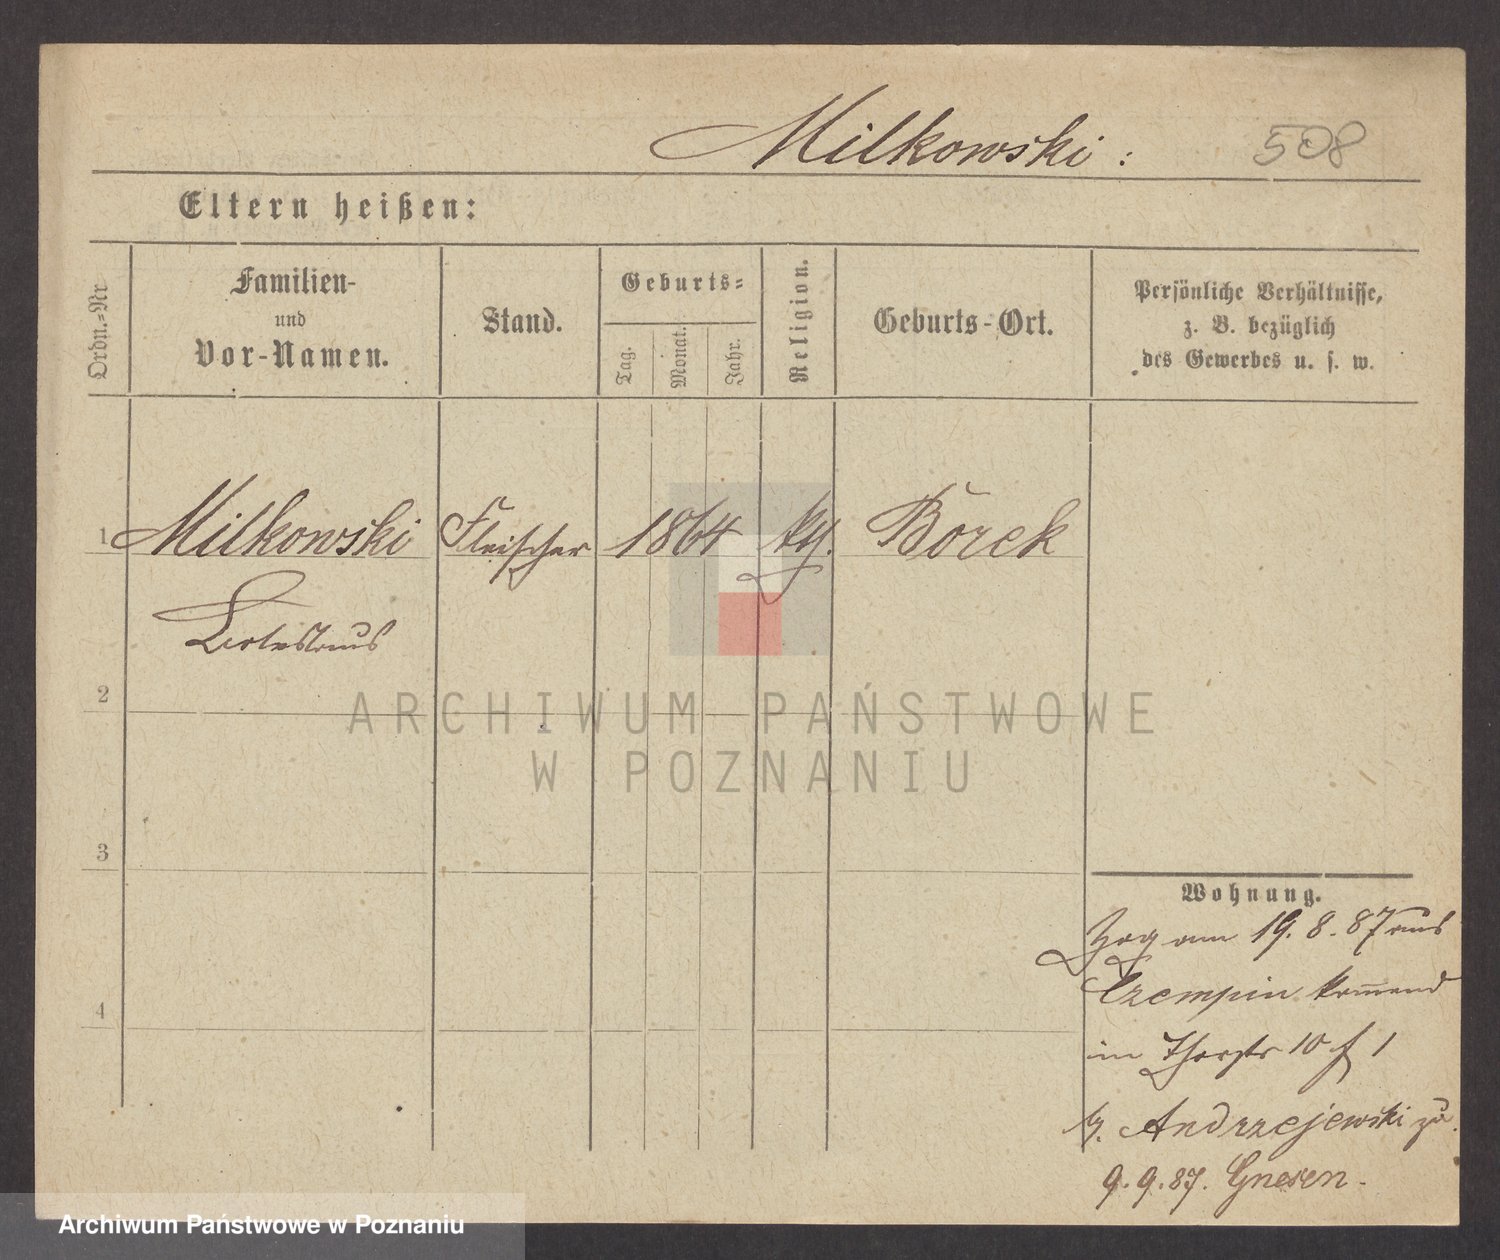 Milkowski :
508
Eltern heißen:
Ordn.-Nr
Familien-
und
Vor-Namen.
Stand.
Geburts-
Tag.
Monat.
Jahr.
Religion.
Geburts-Ort.
Persönliche Verhältnisse,
z. B. bezüglich
des Gewerbes u. s. w.
1 Milkowski Fleischer 1864 kth. Borek
2
3
4
Wohnung.
Zog am 19. 8. 87 aus
Czempin kommend
in Thorstr 10 1
b. Andrzejewski zu.
9. 9. 87. Gnesen.
ARCHIWUM PAŃSTWOWE
W POZNANIU
Archiwum Państwowe w Poznaniu